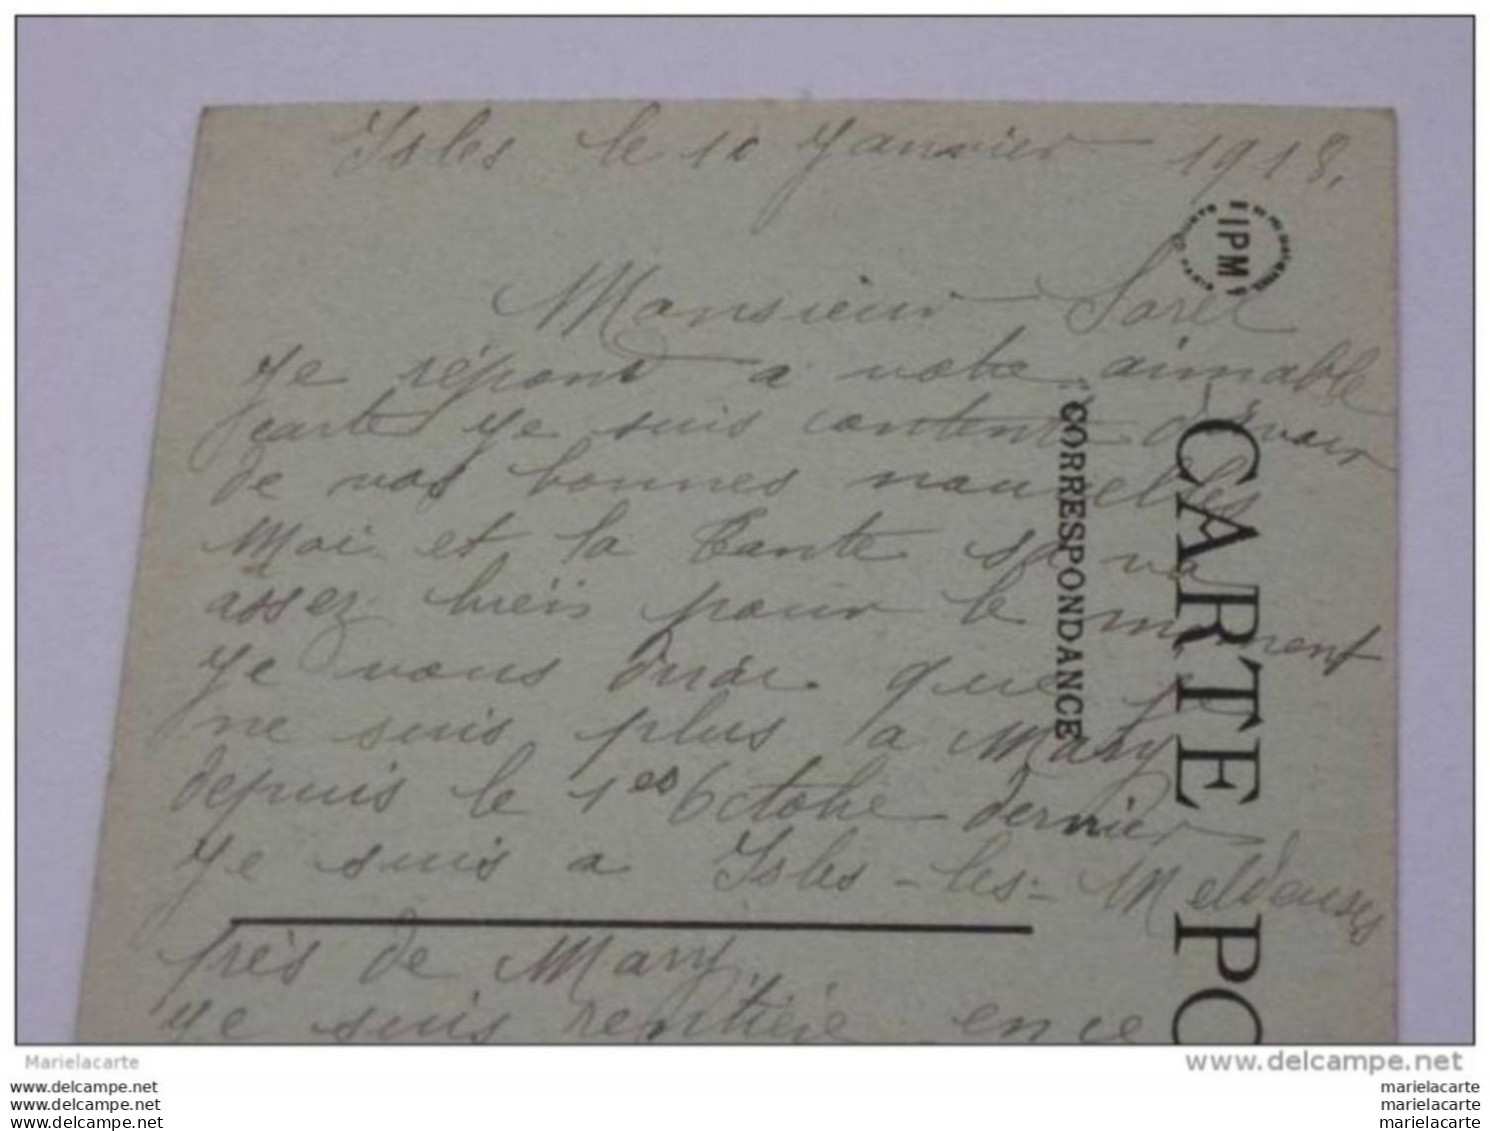 Isles le 10 Janvier 1918,
Monsieur Sorel
Je répons a votre aimable
carte je suis contente d'avoir
de vos bonnes nouvelles
Moi et la Tante sa va
assez bien pour le moment
Je vous dirai que je
ne suis plus a Mary
depuis le 1er Octobre dernier
Je suis a Isles-les-Meldeuses
près de Mary,
Je suis rentière en ce
IPM
CORRESPONDANCE
CARTE PO
Marielacarte
www.delcampe.net
www.delcampe.net
www.delcampe.net
www.delcampe.net
marielacarte
marielacarte
marielacarte